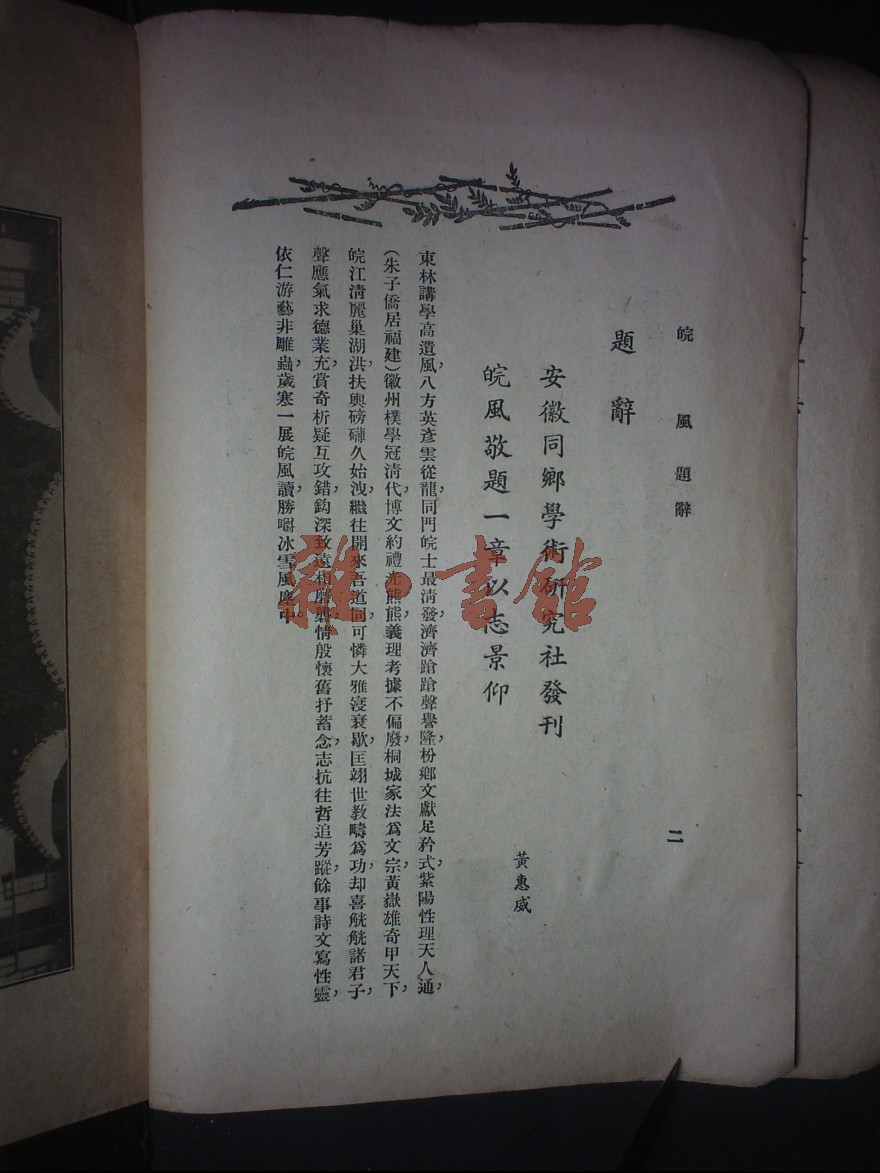 皖風題辭
二
題辭
安徽同鄉學術研究社發刊
皖風敬題一章以志景仰
黃惠威
東林講學高遺風,八方英彥雲從龍,同門皖士最清發,濟濟蹌蹌聲譽隆,枌鄉文獻足矜式,紫陽性理天人通,
(朱子僑居福建)徽州樸學冠清代,博文約禮光熊熊,義理考據不偏廢,桐城家法爲文宗,黃嶽雄奇甲天下,
皖江清麗巢湖洪,扶輿磅礴久始洩,繼往開來吾道同,可憐大雅寖衰歇,匡翊世教疇爲功,却喜觥觥諸君子,
聲應氣求德業充,賞奇析疑互攻錯,鈎深致遠相磨礱,情殷懷舊抒蓄念,志抗往哲追芳蹤,餘事詩文寫性靈,
依仁游藝非雕蟲,歲寒一展皖風讀,勝嚼冰雪風塵中。
雜·書館